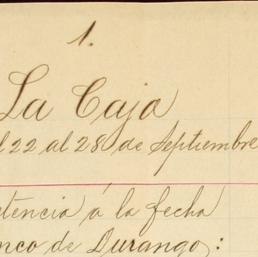 1.
La Caja
l 22 al 28 de Septiembre
tencia á la fecha
nco de Durango: